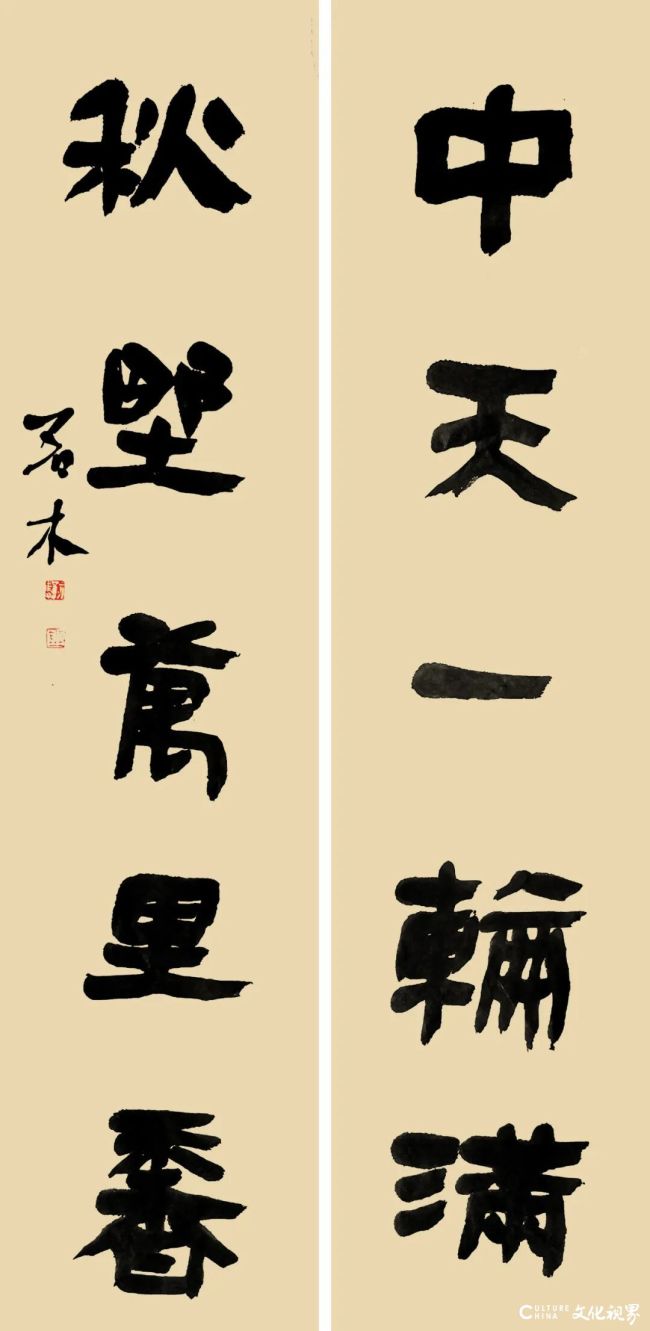 中天一輪滿
秋野萬里香
若木
CULTURE CHINA 文化视界